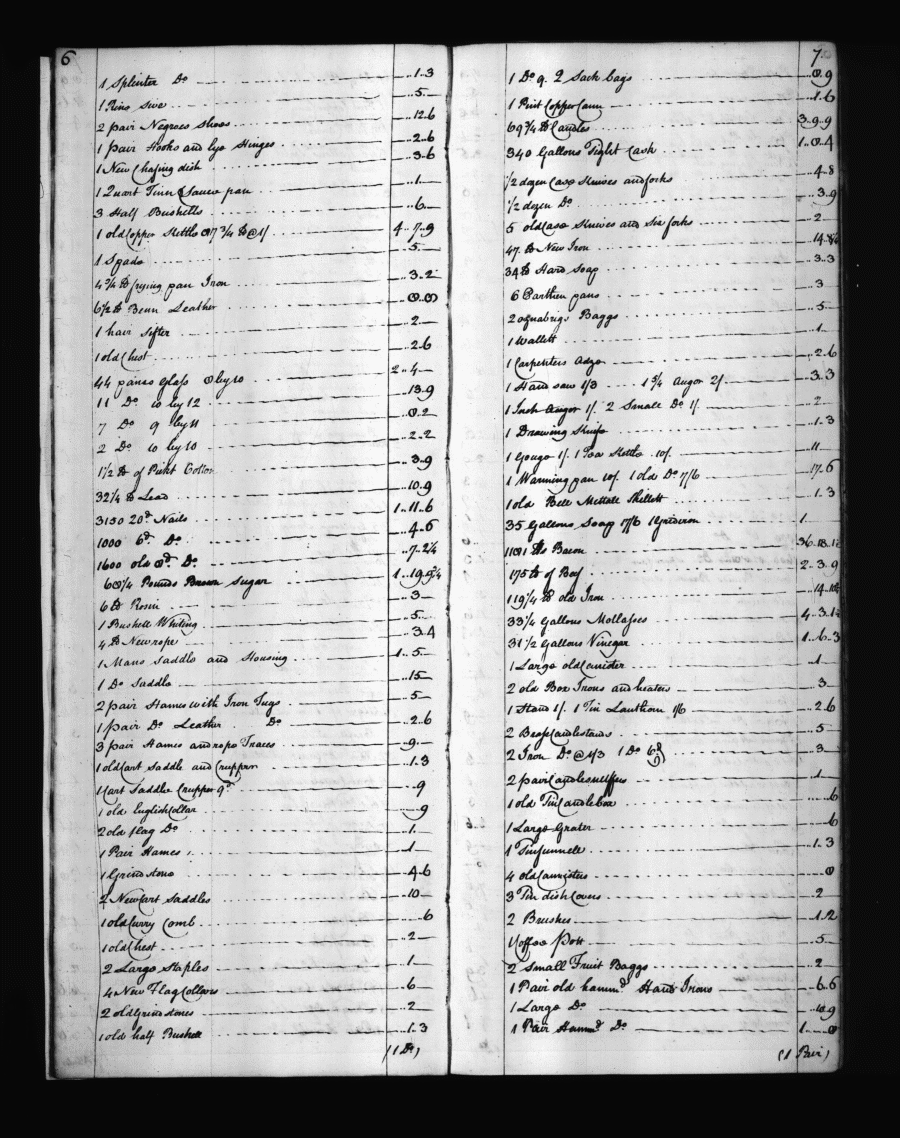 6
1 Splinter Do — 1..3
1 Rine Sive — ..5..
2 pair Negroes Shoes — ..12.6
1 pair Hooks and Eye Hinges — ..2..6
1 New Chafing dish — ..3..6
1 Quart Tinn Sauce pan — ..1
3 Half Bushells — ..6..
1 old Copper Kettle 87 3/4 lb @ 1/ — 4..7..9
1 Spade — ..5..
4 3/4 lb frying pan Iron — ..3..2
6 1/2 lb Leather — ..8..8
1 hair Sifter — ..2
1 old Chest — ..2.6
44 panes Glass 8 by 10 — 2..4
11 Do 10 by 12 — ..13.9
7 Do 9 by 11 — ..8.2
2 Do 10 by 10 — ..2.2
1 1/2 lb of Pickt Cotton — ..3..9
32 1/4 lb Lead — ..10.9
3150 20d Nails — 1..11..6
1000 6d Do — ..4..6
1600 old 8d Do — ..7..2 1/4
68 1/4 Pounds Brown Sugar — 1..19.9 3/4
6 lb Rosin — ..3
1 Bushell Whiting — ..5..
4 lb New rope — ..3.4
1 Mans Saddle and Housing — 1..5..
1 Do Saddle — ..15
2 pair Hames with Iron Tugs — ..5
1 pair Do Leather Do — ..2.6
3 pair Hames and rope Traces — ..9..
1 old Cart Saddle and Crupper — ..1.3
1 Cart Saddle Crupper 9d — ..9
1 old English Collar — ..9
2 old flag Do — ..1.
1 Pair Hames — ..1
1 Grindstone — ..4.6
2 New Cart Saddles — ..10
1 old Curry Comb — ..6
1 old Chest — ..2
2 Large Staples — ..1
4 New Flag Collars — ..6
2 old Grindstones — ..2
1 old half Bushell — ..1.3
(1 Do)
7
1 Do q. 2 Sack bags — ..8.9
1 Pint Copper Cann — ..1.6
69 3/4 lb Candles — 3..9..9
340 Gallons Tight Cask — 1..8..4
1/2 dozen Case Knives and forks — ..4..8
1/2 dozen Do — ..3..9
5 old Case Knives and Six forks — ..2
47 lb New Iron — ..14..
34 lb Hard Soap — ..3.3
6 Earthen pans — ..3
2 oznabrigs Baggs — ..5
1 Wallett — ..1
1 Carpenters Adze — ..2.6
1 Hand saw 1/3 1 3/4 Augor 2/ — ..3.3
1 Inch Augor 1/. 2 Small Do 1/. — ..2
1 Drawing Knife — ..1.3
1 Gouge 1/. 1 Tea Kettle 10/. — ..11
1 Warming pan 10/. 1 old Do 7/6 — ..17.6
1 old Bell Mettale Skillett — ..1.3
35 Gallons Soap 17/6 1 Gridiron — 1
1181 lbs Bacon — 36..18..1
175 lb of Beef — 2..3..9
119 1/4 lb old Iron — ..14..10
33 1/4 Gallons Mollasses — 4..3..1
31 1/2 Gallons Vinegar — 1..6..3
1 Large old Canister — ..1
2 old Box Irons and heaters — ..3
1 Stand 1/. 1 Tin Lanthorn 1/6 — ..2.6
2 Brass Candlestands — ..5
2 Iron Do @ 1/3 1 Do 6d — ..3
2 pair Candlesnuffers — ..1
1 old Tin Candlebox — ..6
1 Large Grater — ..6
1 Tin funnell — ..1.3
4 old Cannisters — ..8
3 Tin dish Covers — ..2
2 Brushes — ..1.2
1 Coffee Pott — ..5
2 Small Fruit Baggs — ..2
1 Pair old hammd Hand Irons — ..6.6
1 Large Do — ..10.9
1 Pair Hammd Do — 1..8
(1 Pair)